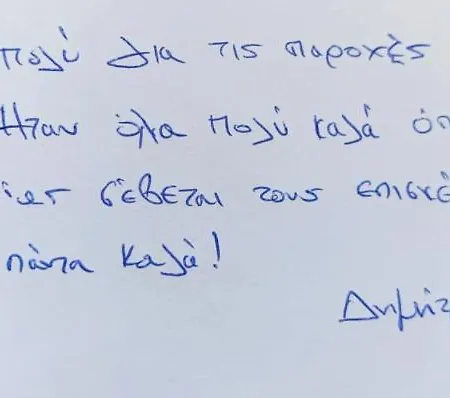 πολύ για τις παροχές
Ήταν όλα πολύ καλά όπ
σέβεται τους επισκέ
πάντα καλά!
Δημήτ